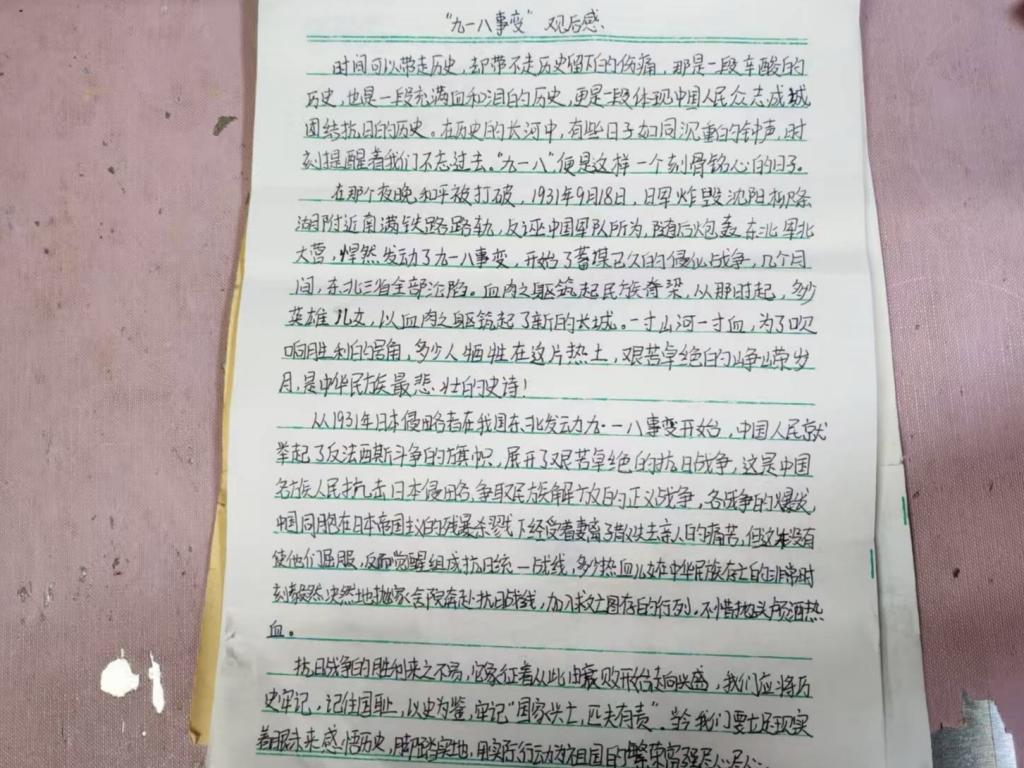 "九一八事变"观后感
时间可以带走历史，却带不走历史留下的伤痛，那是一段辛酸的
历史，也是一段充满血和泪的历史，更是一段体现中国人民众志成城
团结抗日的历史。在历史的长河中，有些日子如同沉重的钟声，时
刻提醒着我们不忘过去。"九一八"便是这样一个刻骨铭心的日子。
在那个夜晚和平被打破，1931年9月18日，日军炸毁沈阳柳条
湖附近南满铁路路轨，反诬中国军队所为，随后炮轰东北军北
大营，悍然发动了九一八事变，开始了蓄谋已久的侵华战争，几个月
间，东北三省全部沦陷。血肉之躯筑起民族脊梁，从那时起，多少
英雄儿女，以血肉之躯筑起了新的长城。一寸山河一寸血，为了吹
响胜利的号角，多少人牺牲在这片热土，艰苦卓绝的峥嵘岁
月，是中华民族最悲壮的史诗！
从1931年日本侵略者在我国东北发动九·一八事变开始，中国人民就
举起了反法西斯斗争的旗帜，展开了艰苦卓绝的抗日战争，这是中国
各族人民抗击日本侵略，争取民族解放的正义战争，各战争的爆发，
中国同胞在日本帝国主义的残暴杀戮下经受着妻离子散以失去亲人的痛苦，但这未没有
使他们屈服，反而觉醒组成抗日统一战线，多少热血儿女在中华民族存亡的非常时
刻毅然决然地抛家舍院奔赴抗日战线，加入救亡图存的行列，不惜抛头颅洒热
血。
抗日战争的胜利来之不易，它象征着从此由衰败开始走向兴盛，我们应将历
史牢记，记住国耻，以史为鉴，牢记"国家兴亡，匹夫有责"。我们要立足现实
着眼未来感悟历史，脚踏实地，用实际行动为祖国的繁荣富强尽心尽